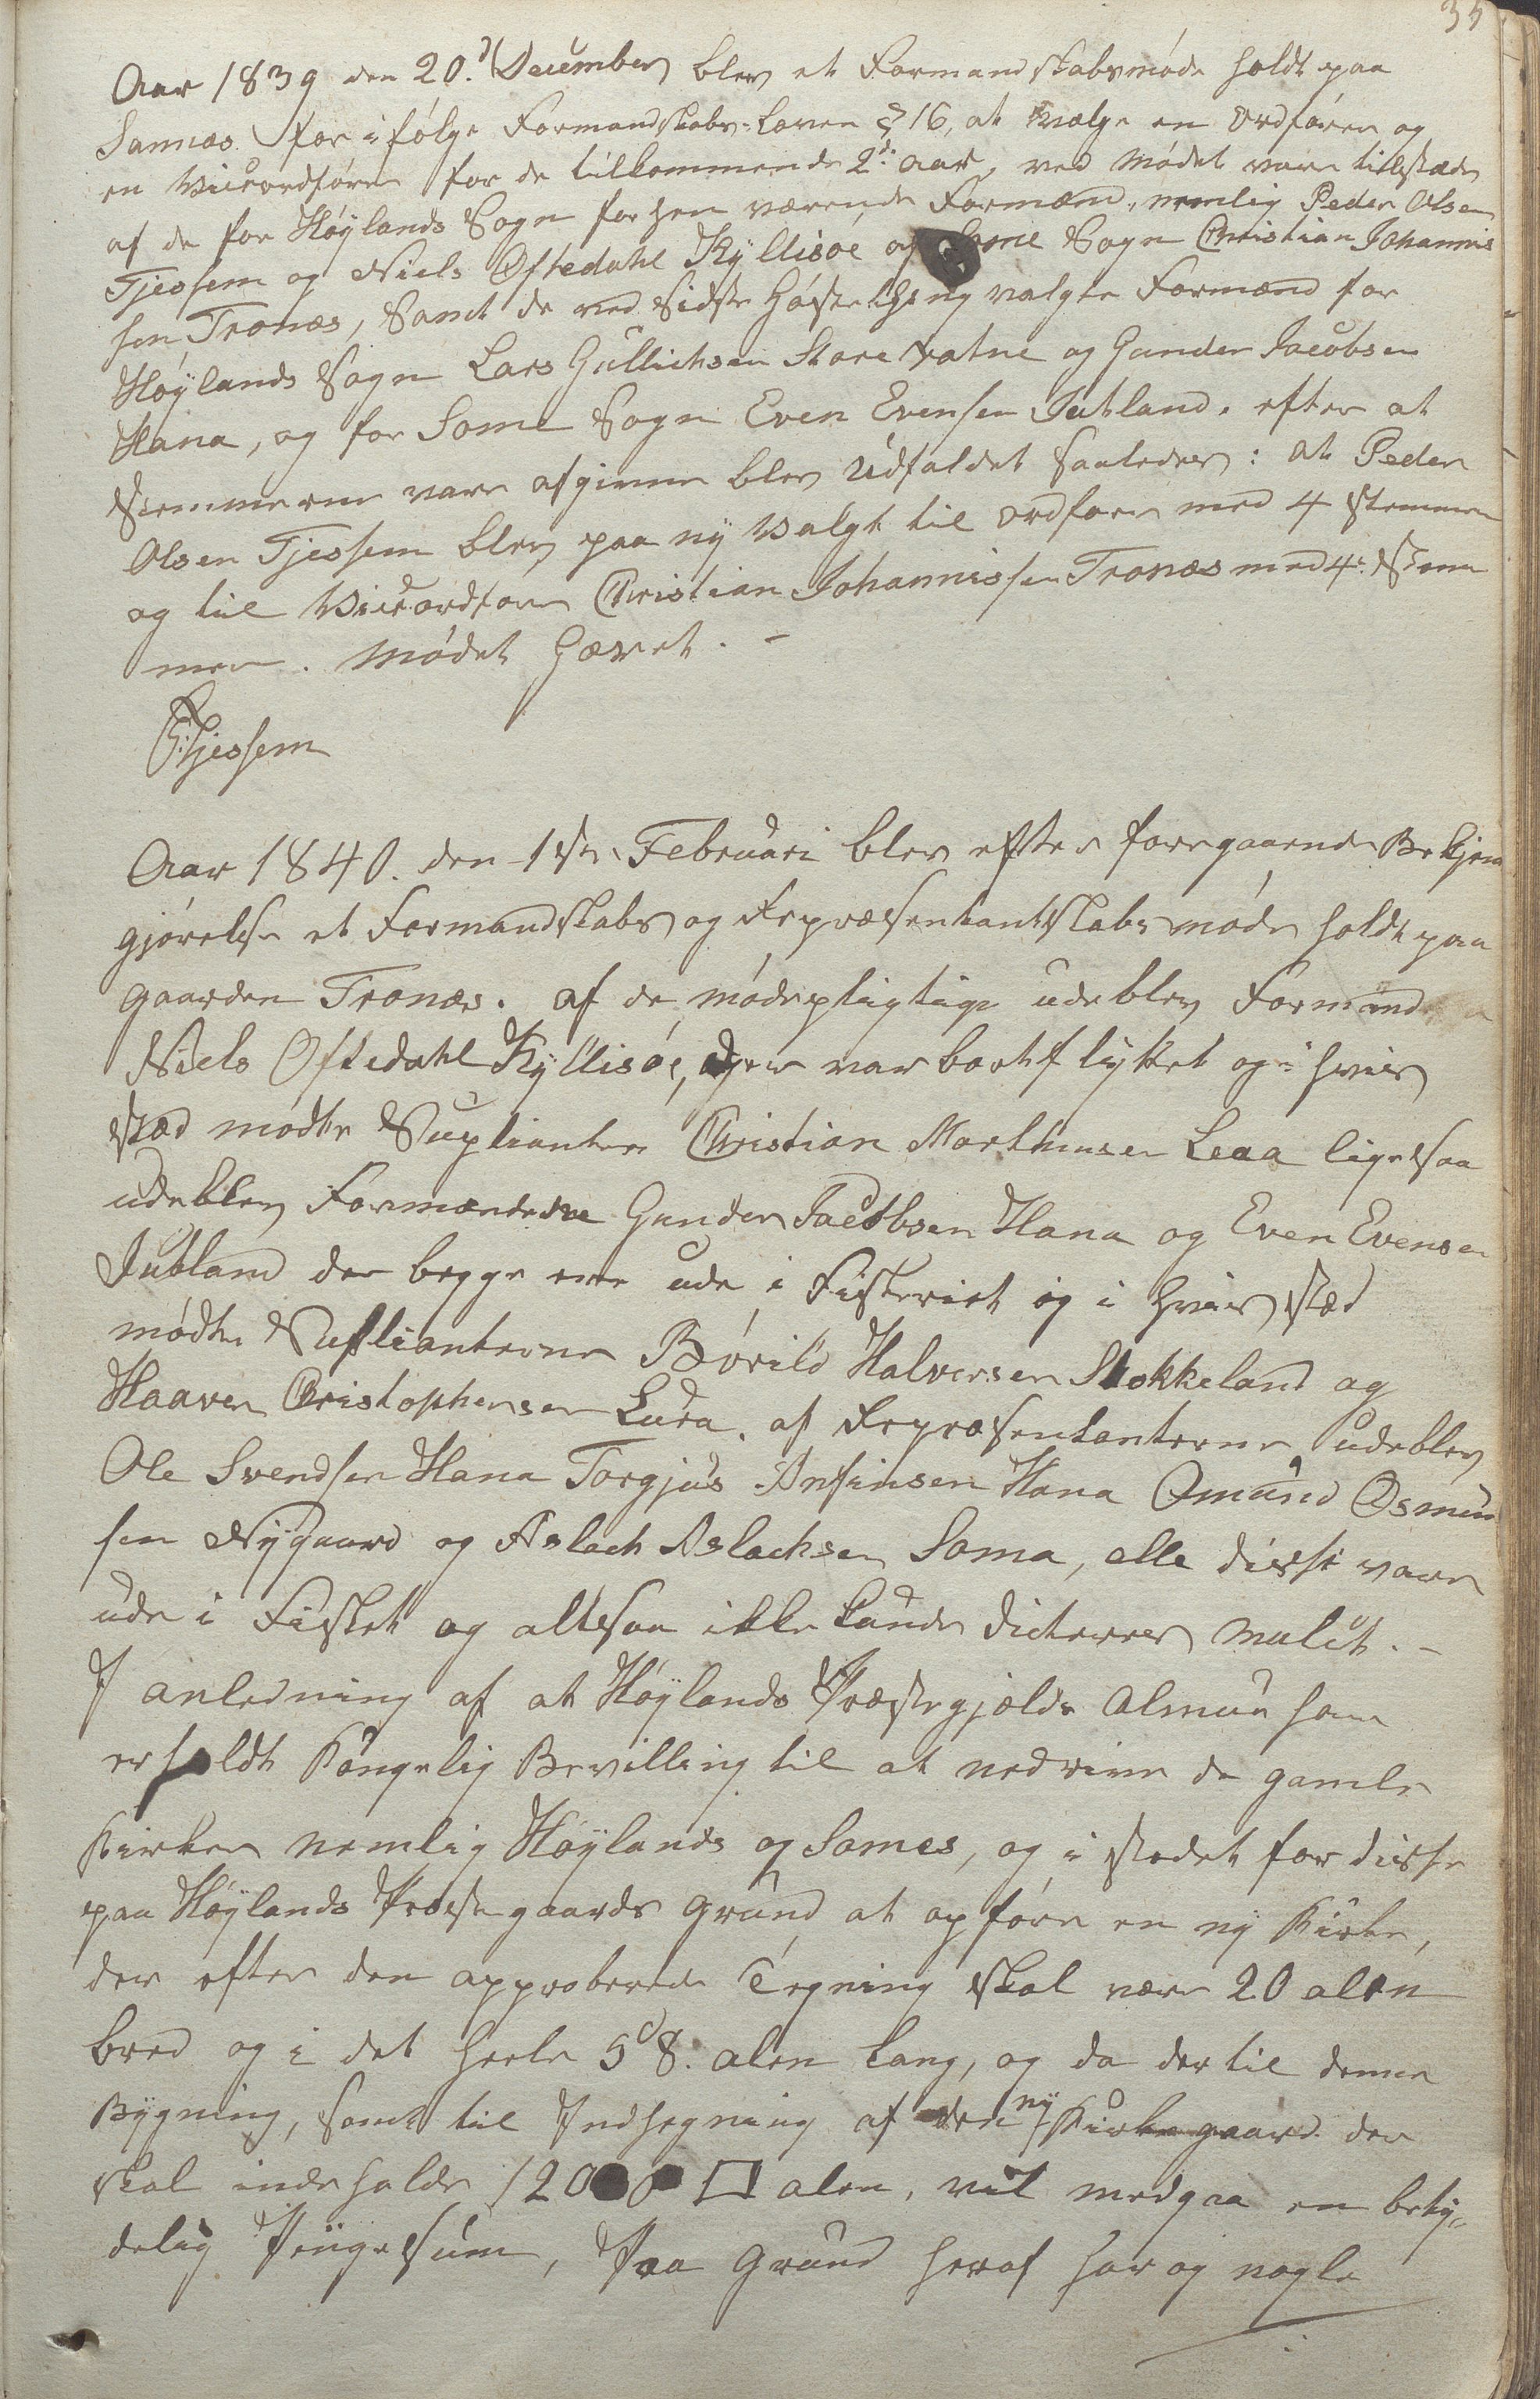 35
Aar 1839 den 20.d December blev et Formandskabsmøde holdt paa
Sannæs for i følge Formandskabs-Loven § 16, at vælge en Ordfører og
en Viceordfører for de tilkommende 2de Aar, ved Mødet vare tilstæde
af de for Høylands Sogn forhen værende Formænd, nemlig Peder Olsen
Tjessem og Niels Oftedahl Kÿllisøe og Some Sogn Christian Johannis
sen Tronæs, Samt de ved Sidste Høstething valgte Formænd for
Høÿlands Sogn Lars Gullichsen Store Vatne og Gunder Jacobsen
Hana, og for Some Sogn Even Evensen Jutland. efter at
Stemmerne vare afgivne blev Udfaldet saaledes: at Peder
Olsen Tjessem blev paa nÿ valgt til Ordfører med 4 stemmer
og til Viceordfører Christian Johannissen Tronæs med 4r Stem
mer. Mødet Hævet. -
Tjessem
Aar 1840. den 1ste Februari blev efter foregaaende Bekjen
gjørelse et Formandskabs og Repræsentantskabs møde holdt paa
gaarden Tronæs. af de mødepligtige udeblev Formand
Niels Oftedahl Kÿllisøe, der var bortflÿttet og i hvis
stæd mødte Suplianten Christian Morthensen Leaa ligesaa
udeblev Formændene Gunder Jacobsen Hana og Even Evensen
Jutland der begge ere ude i Fiskeriet og i hvis stæd
mødte Suplianterne Børild Halvorsen Stokkeland og
Haaver Christophersen Lura. af Repræsentanterne udeblev
Ole Svendsen Hana Torgjus Anfinsen Hana Omund Osmun
sen Nÿgaard og Aslach Aslachsen Soma, alle disse vare
ude i Fisket og altsaa ikke kunde dicteres mulct. -
I anledning af at Høÿlands Præstegjælds Almue har
erholdt Kongelig Bevilling til at nedrive de gamle
Kirker nemlig Høÿlands og Somes, og i stedet for disse
paa Høÿlands Præstegaards Grund at opføre en nÿ Kirke,
der efter den approberede Tegning skal være 20 alen
bred og i det heele 58. alen lang, og da der til denne
Bÿgning, samt til Indhegning af den nÿ Kirkegaard der
skal indeholde □ alen, vil medgaa en betÿ-
delig Pengesum, Paa Grund heraf har og nogle